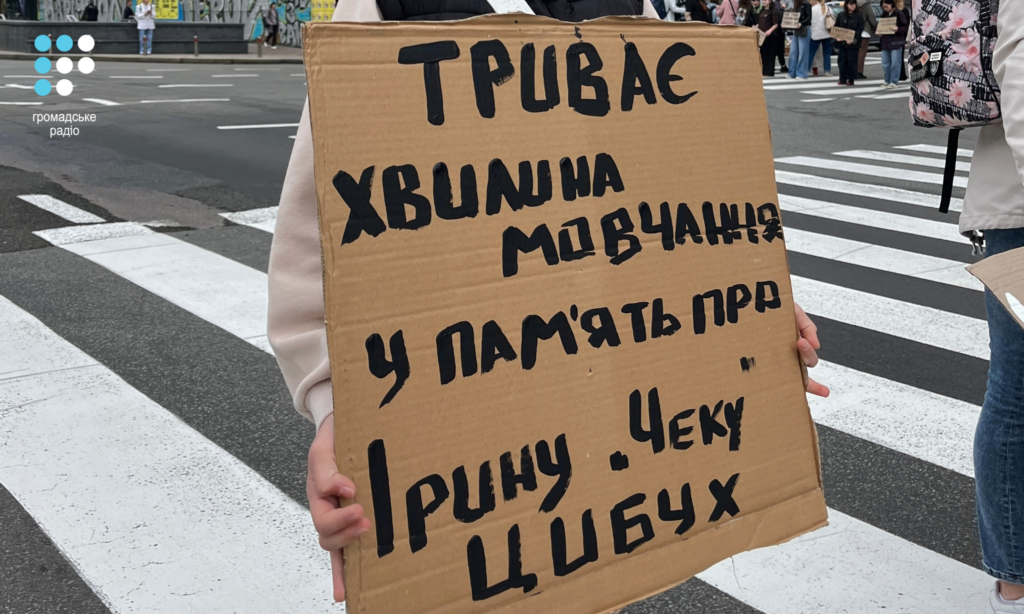 громадське
радіо
ТРИВАЄ
ХВИЛИНА
МОВЧАННЯ
У ПАМ'ЯТЬ ПРО
ІРИНУ "ЧЕКУ"
ЦИБУХ